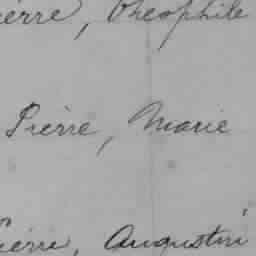 ierre, Théophile
Pierre, Marie
Pierre, Augustin